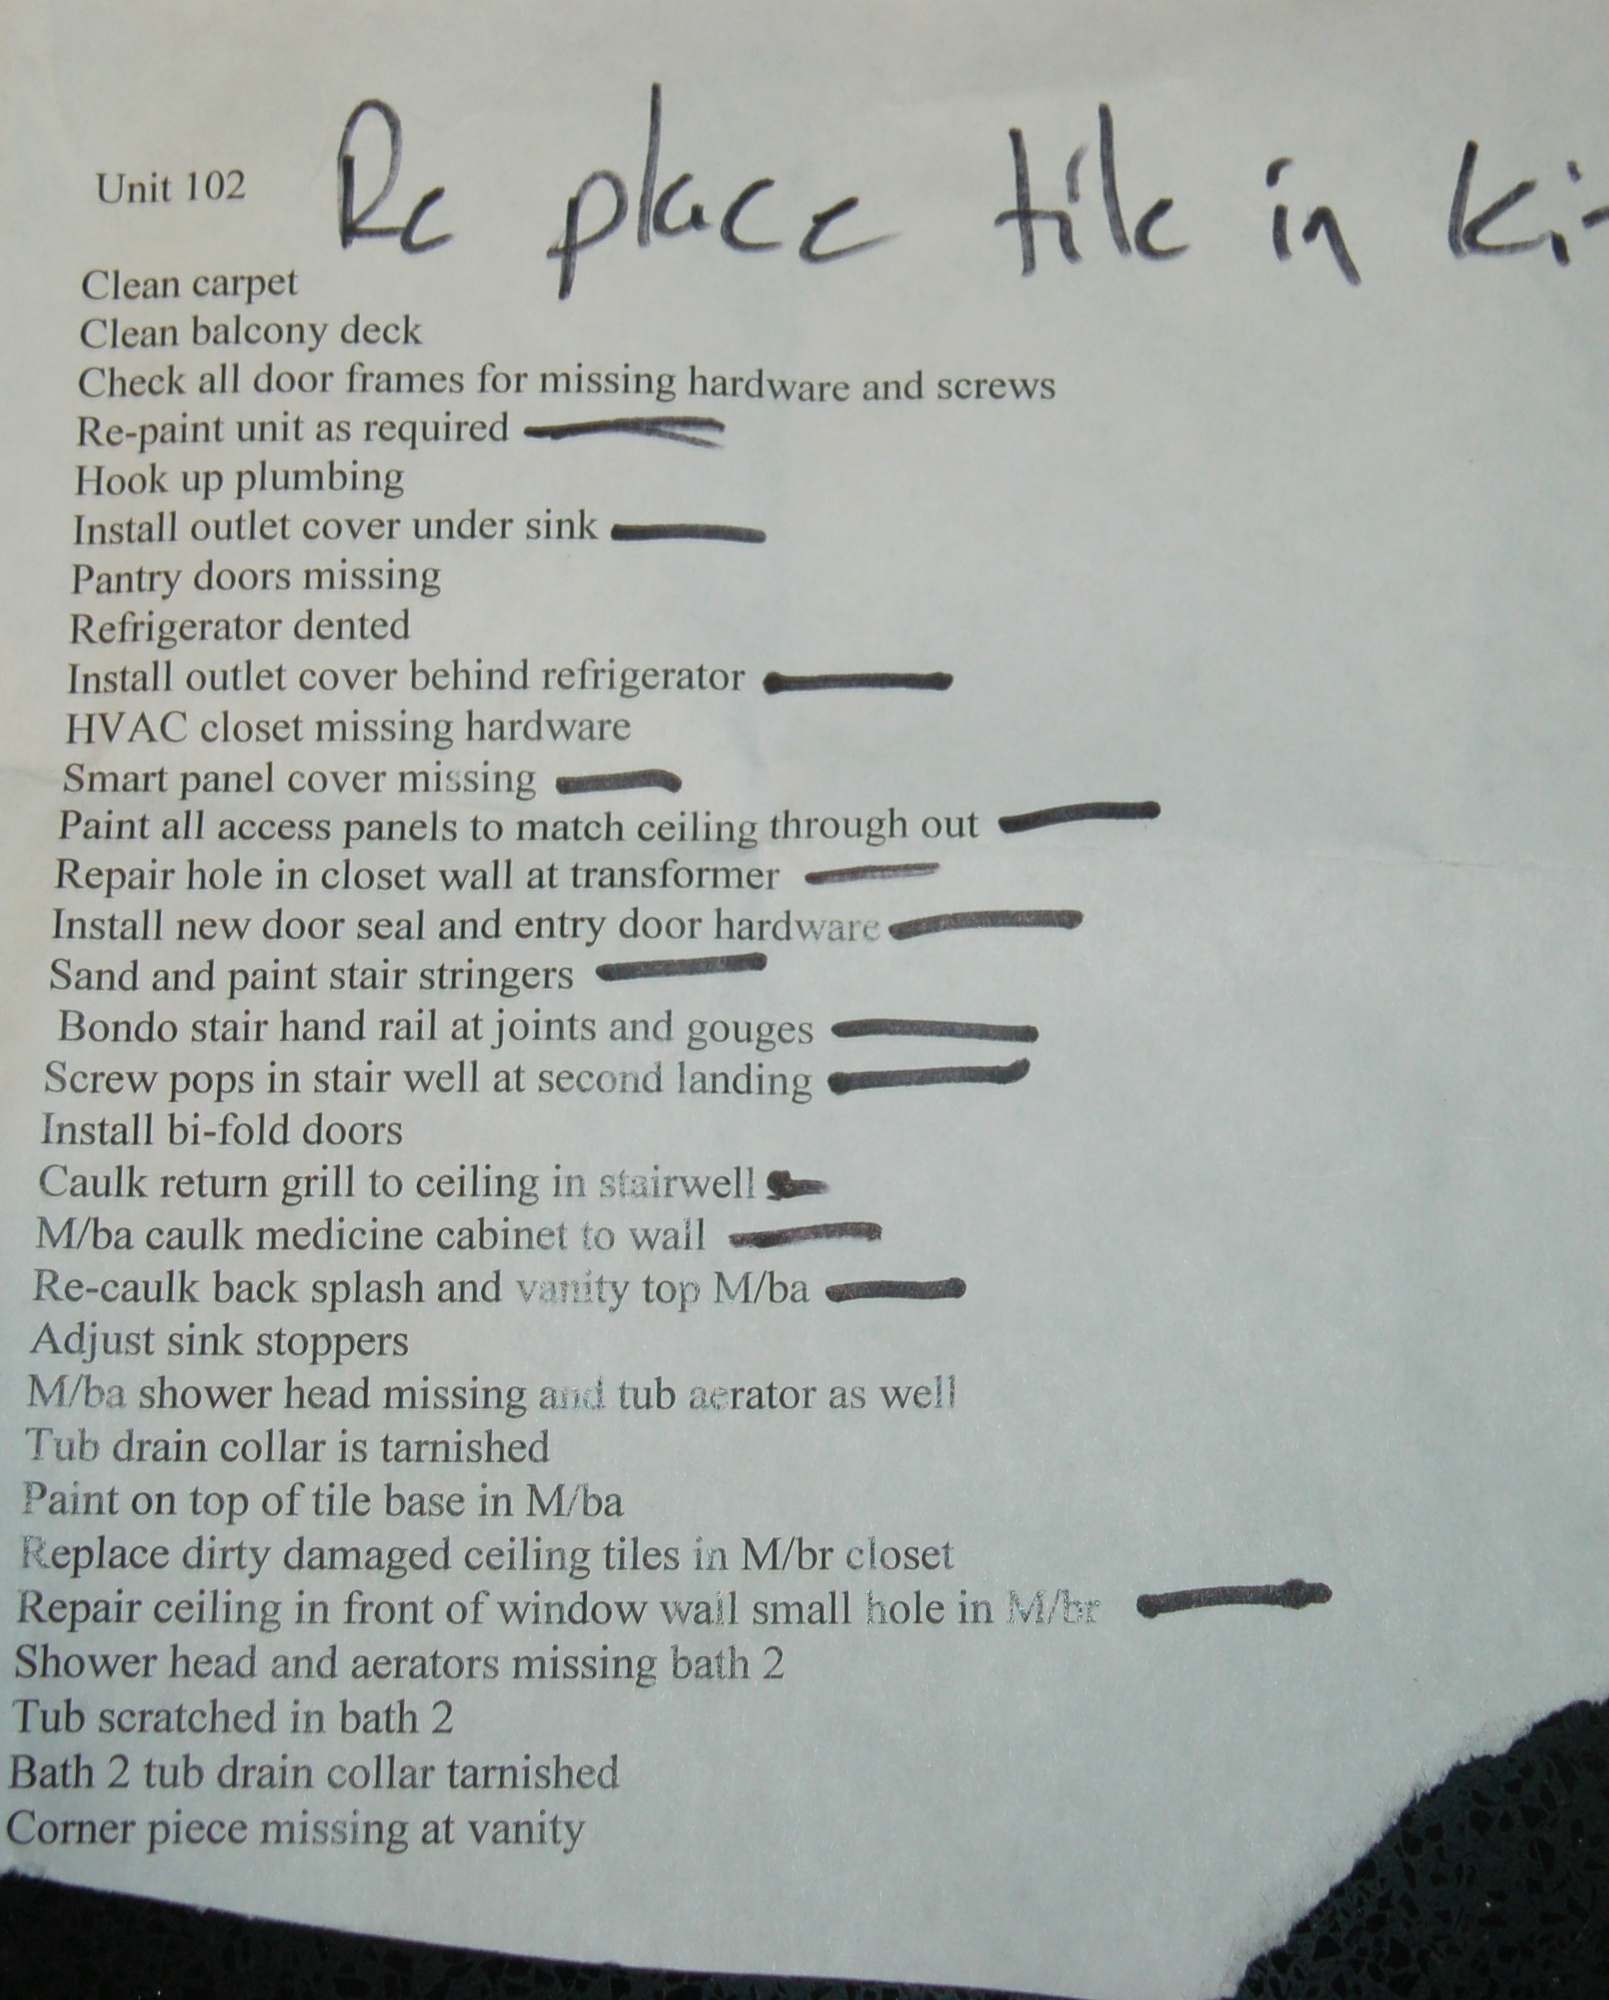 Unit 102 Re place tile in Ki
Clean carpet
Clean balcony deck
Check all door frames for missing hardware and screws
Re-paint unit as required
Hook up plumbing
Install outlet cover under sink
Pantry doors missing
Refrigerator dented
Install outlet cover behind refrigerator
HVAC closet missing hardware
Smart panel cover missing
Paint all access panels to match ceiling through out
Repair hole in closet wall at transformer
Install new door seal and entry door hardware
Sand and paint stair stringers
Bondo stair hand rail at joints and gouges
Screw pops in stair well at second landing
Install bi-fold doors
Caulk return grill to ceiling in stairwell
M/ba caulk medicine cabinet to wall
Re-caulk back splash and vanity top M/ba
Adjust sink stoppers
M/ba shower head missing and tub aerator as well
Tub drain collar is tarnished
Paint on top of tile base in M/ba
Replace dirty damaged ceiling tiles in M/br closet
Repair ceiling in front of window wall small hole in M/br
Shower head and aerators missing bath 2
Tub scratched in bath 2
Bath 2 tub drain collar tarnished
Corner piece missing at vanity